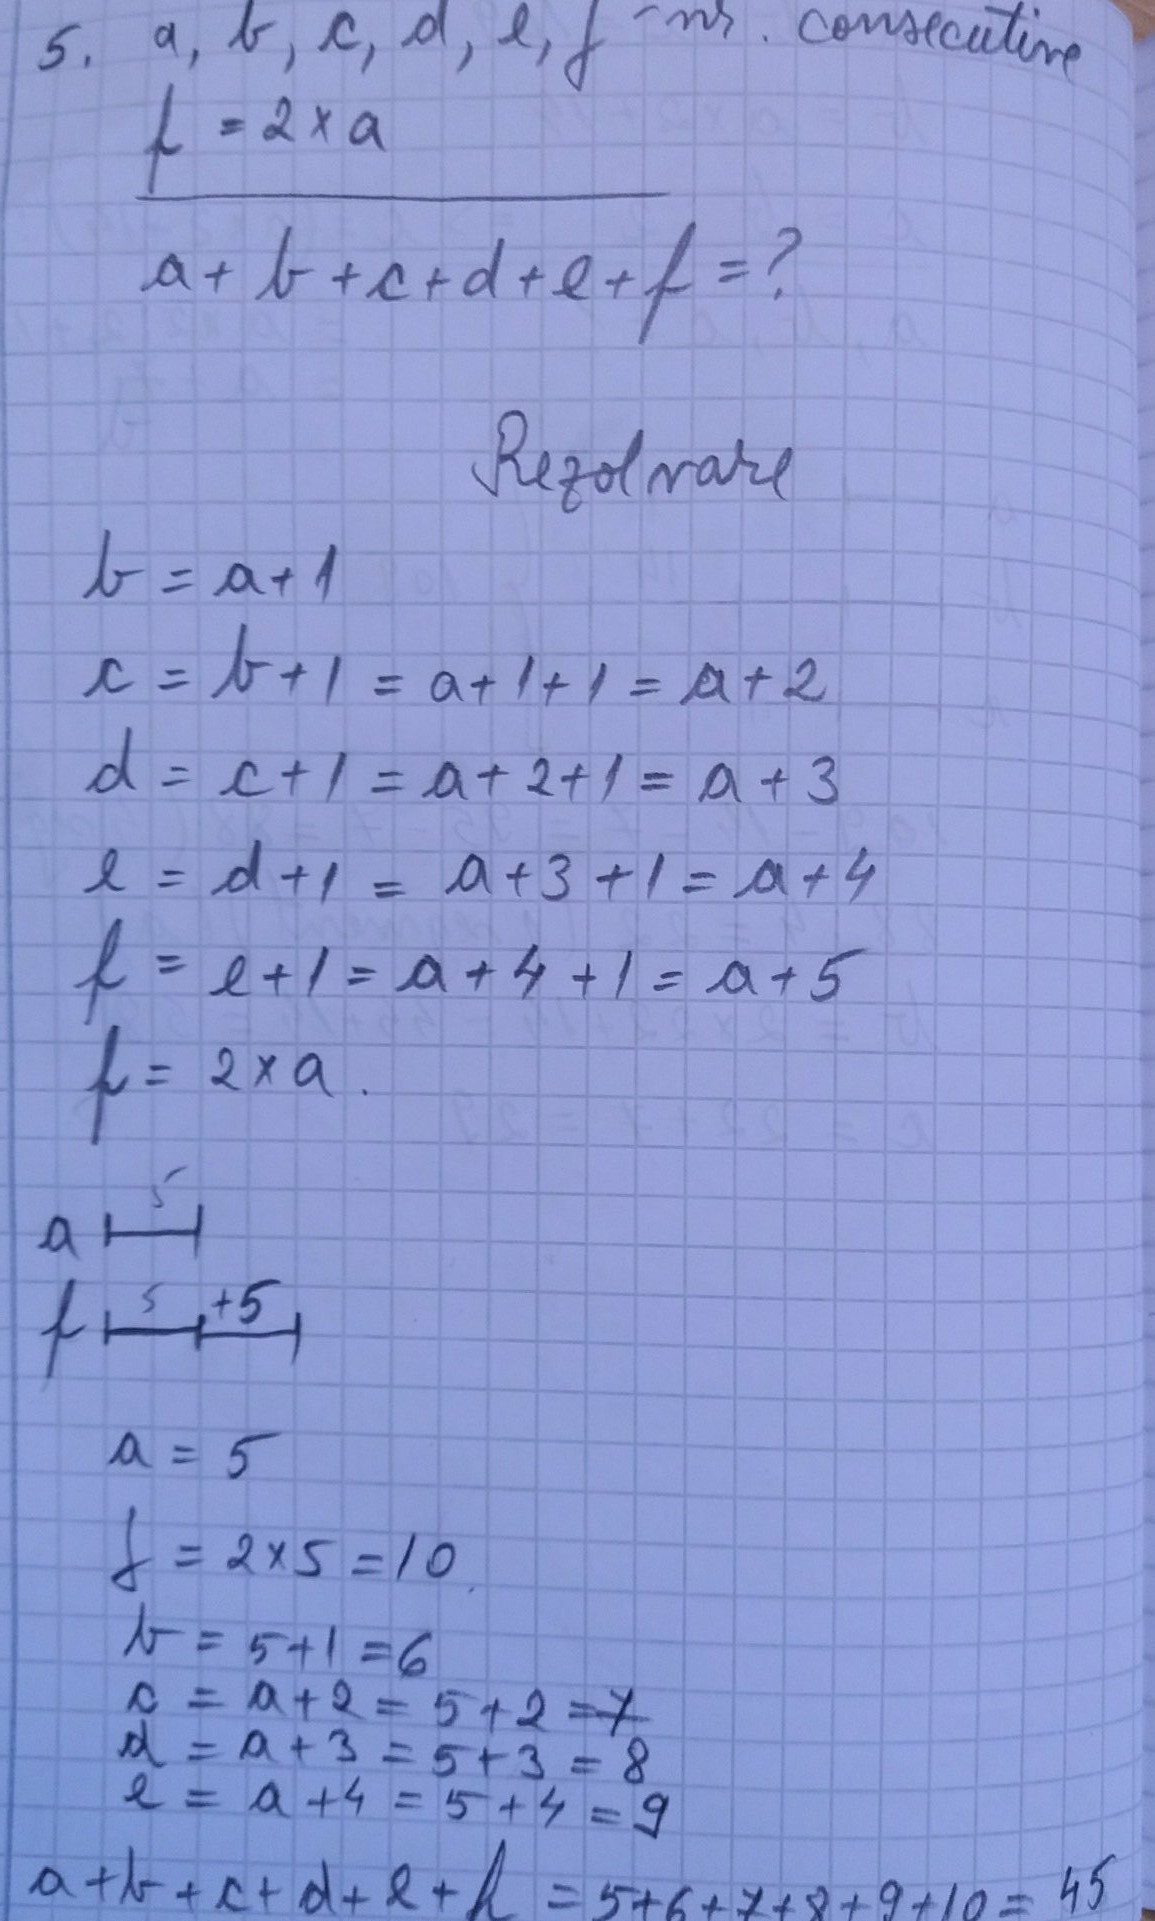 5. a, b, c, d, e, f - nr. consecutive
f = 2 × a
a + b + c + d + e + f = ?
Rezolvare
b = a + 1
c = b + 1 = a + 1 + 1 = a + 2
d = c + 1 = a + 2 + 1 = a + 3
e = d + 1 = a + 3 + 1 = a + 4
f = e + 1 = a + 4 + 1 = a + 5
f = 2 × a.
5
a
5 +5
f
a = 5
f = 2 × 5 = 10.
b = 5 + 1 = 6
c = a + 2 = 5 + 2 = 7
d = a + 3 = 5 + 3 = 8
e = a + 4 = 5 + 4 = 9
a + b + c + d + e + f = 5 + 6 + 7 + 8 + 9 + 10 = 45